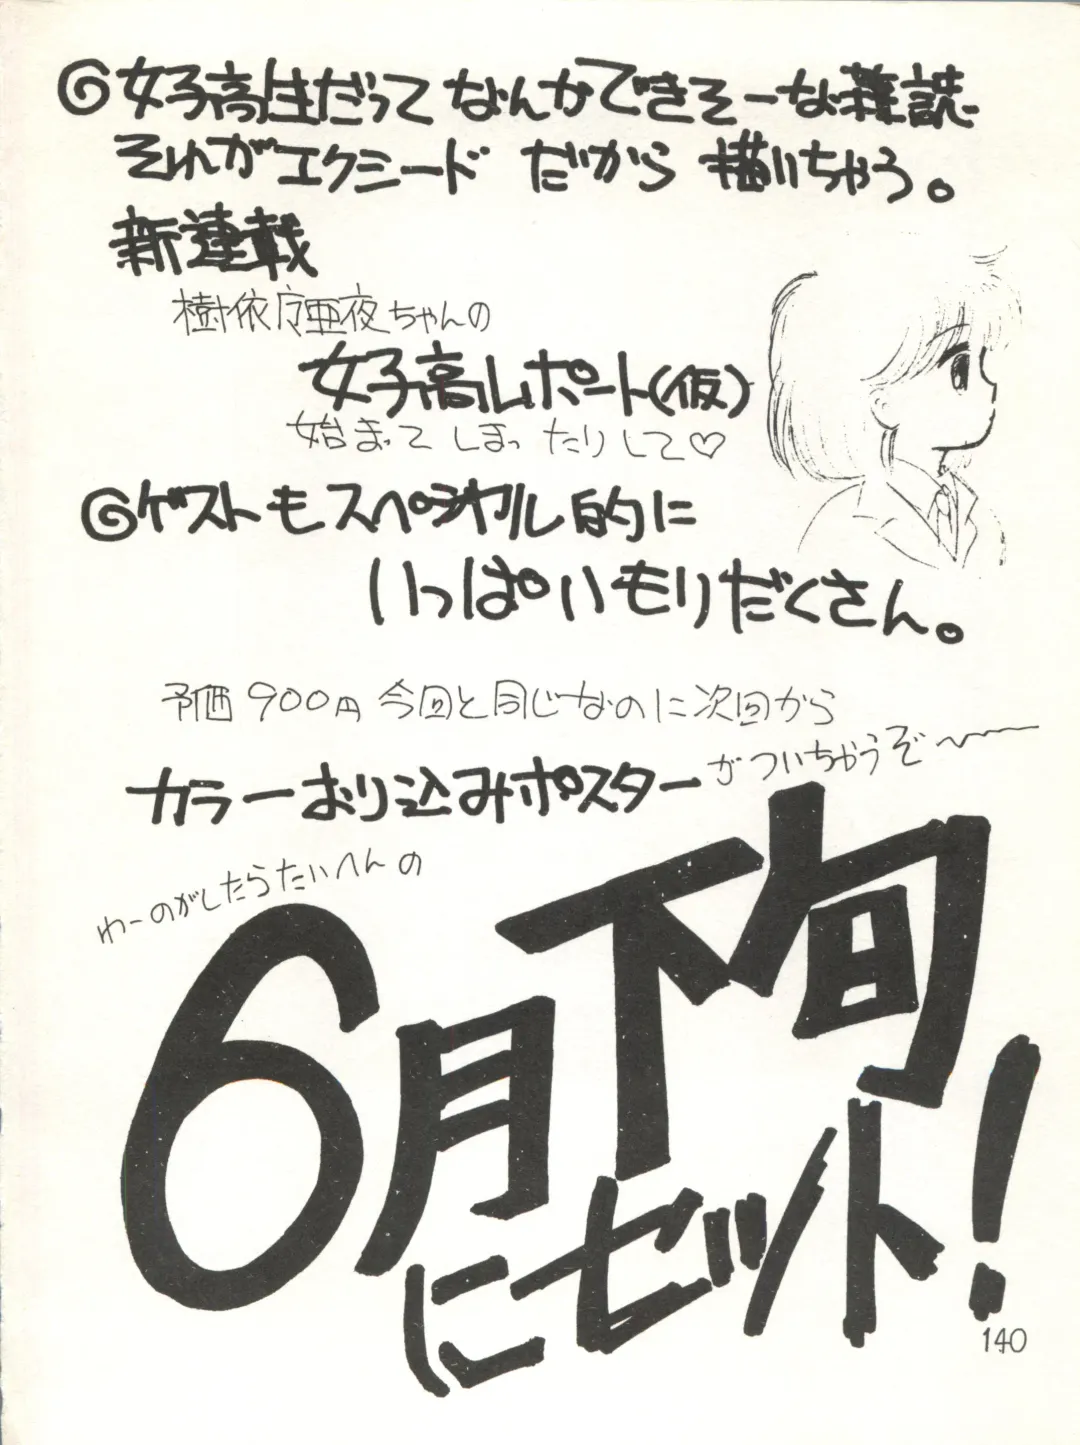 ◎女子高生だってなんかできそーな雑誌
それがエクシード だから 描いちゃう。
新連載
樹依庁亜夜ちゃんの
女子高レポート(仮)
始まってしまったりして♡
◎ゲストもスペシャル的に
いっぱいもりだくさん。
予価900円 今回と同じなのに次回から
カラーおり込みポスターがついちゃうぞ〜
のがしたらたいへんの
6月下旬
にセット!
140